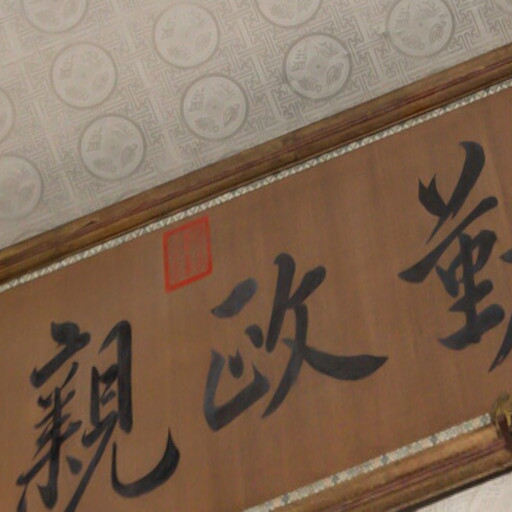 勤政親